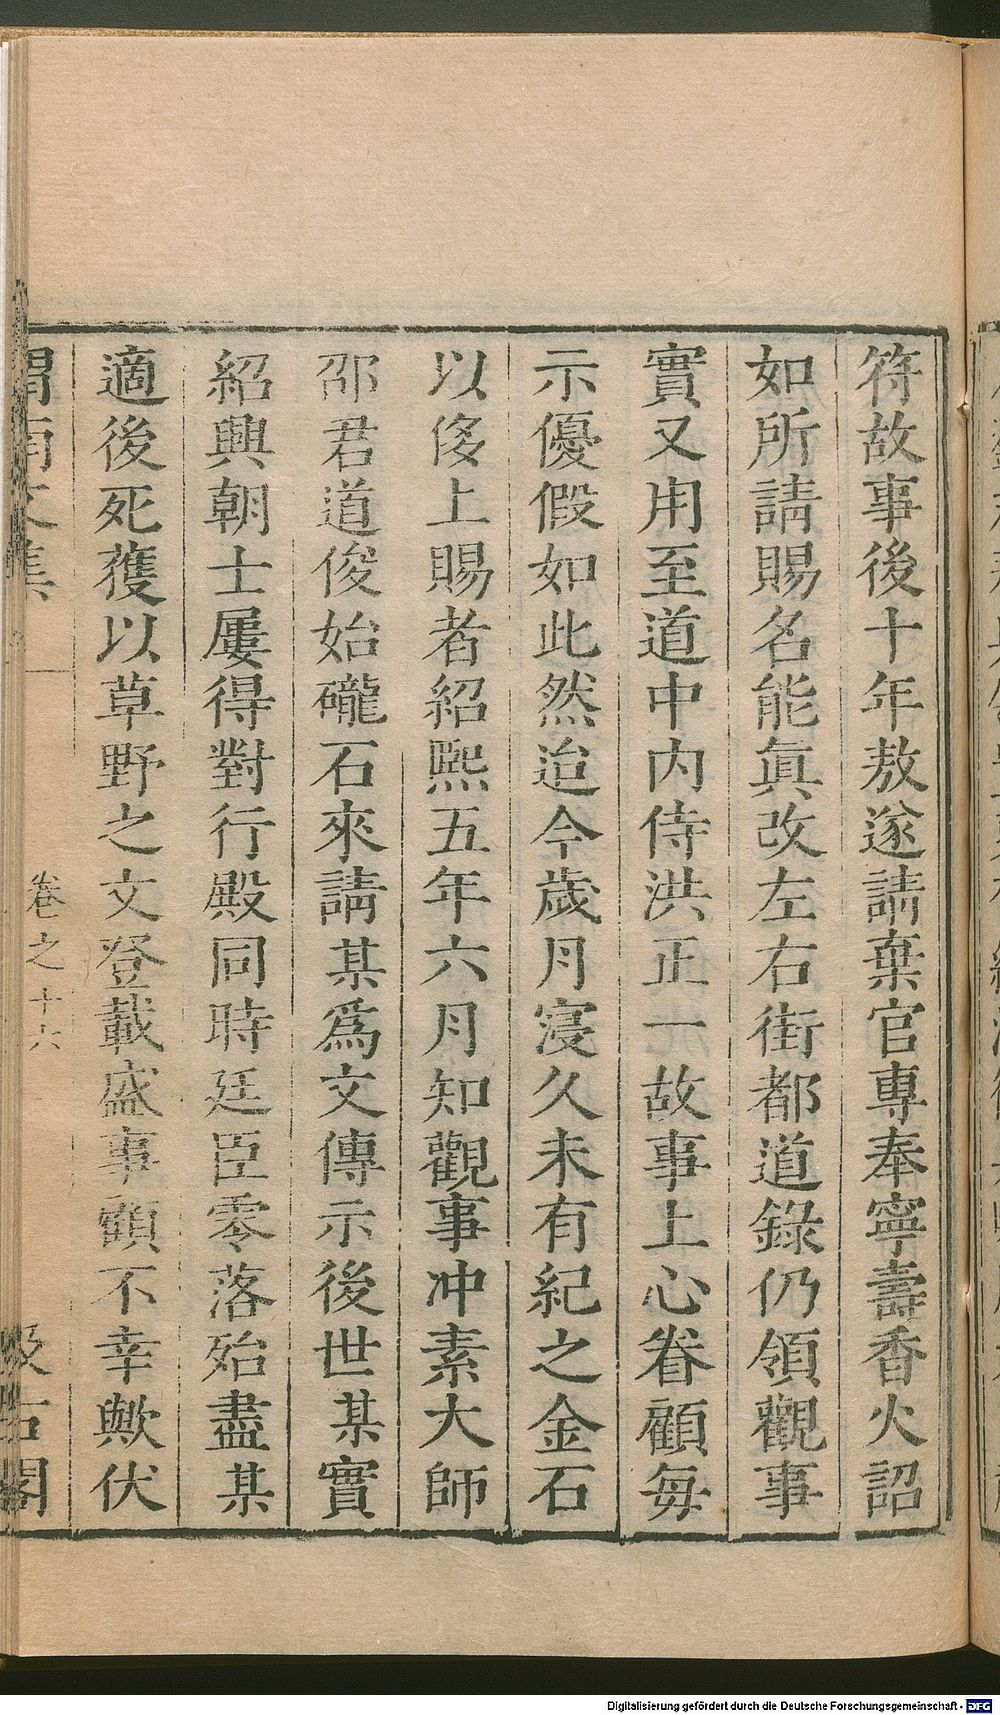 符故事後十年敖遂請棄官專奉寧壽香火詔
如所請賜名能眞改左右街都道錄仍領觀事
實又用至道中内侍洪正一故事上心眷顧毎
示優假如此然迨今歲月寖久未有紀之金石
以侈上賜者紹熙五年六月知觀事冲素大師
邵君道俊始礲石來請某爲文傳示後世某實
紹興朝士屢得對行殿同時廷臣零落殆盡某
適後死獲以草野之文登載盛事顧不幸歟伏
渭南文集
卷之十六
汲古閣
Digitalisierung gefördert durch die Deutsche Forschungsgemeinschaft - DFG